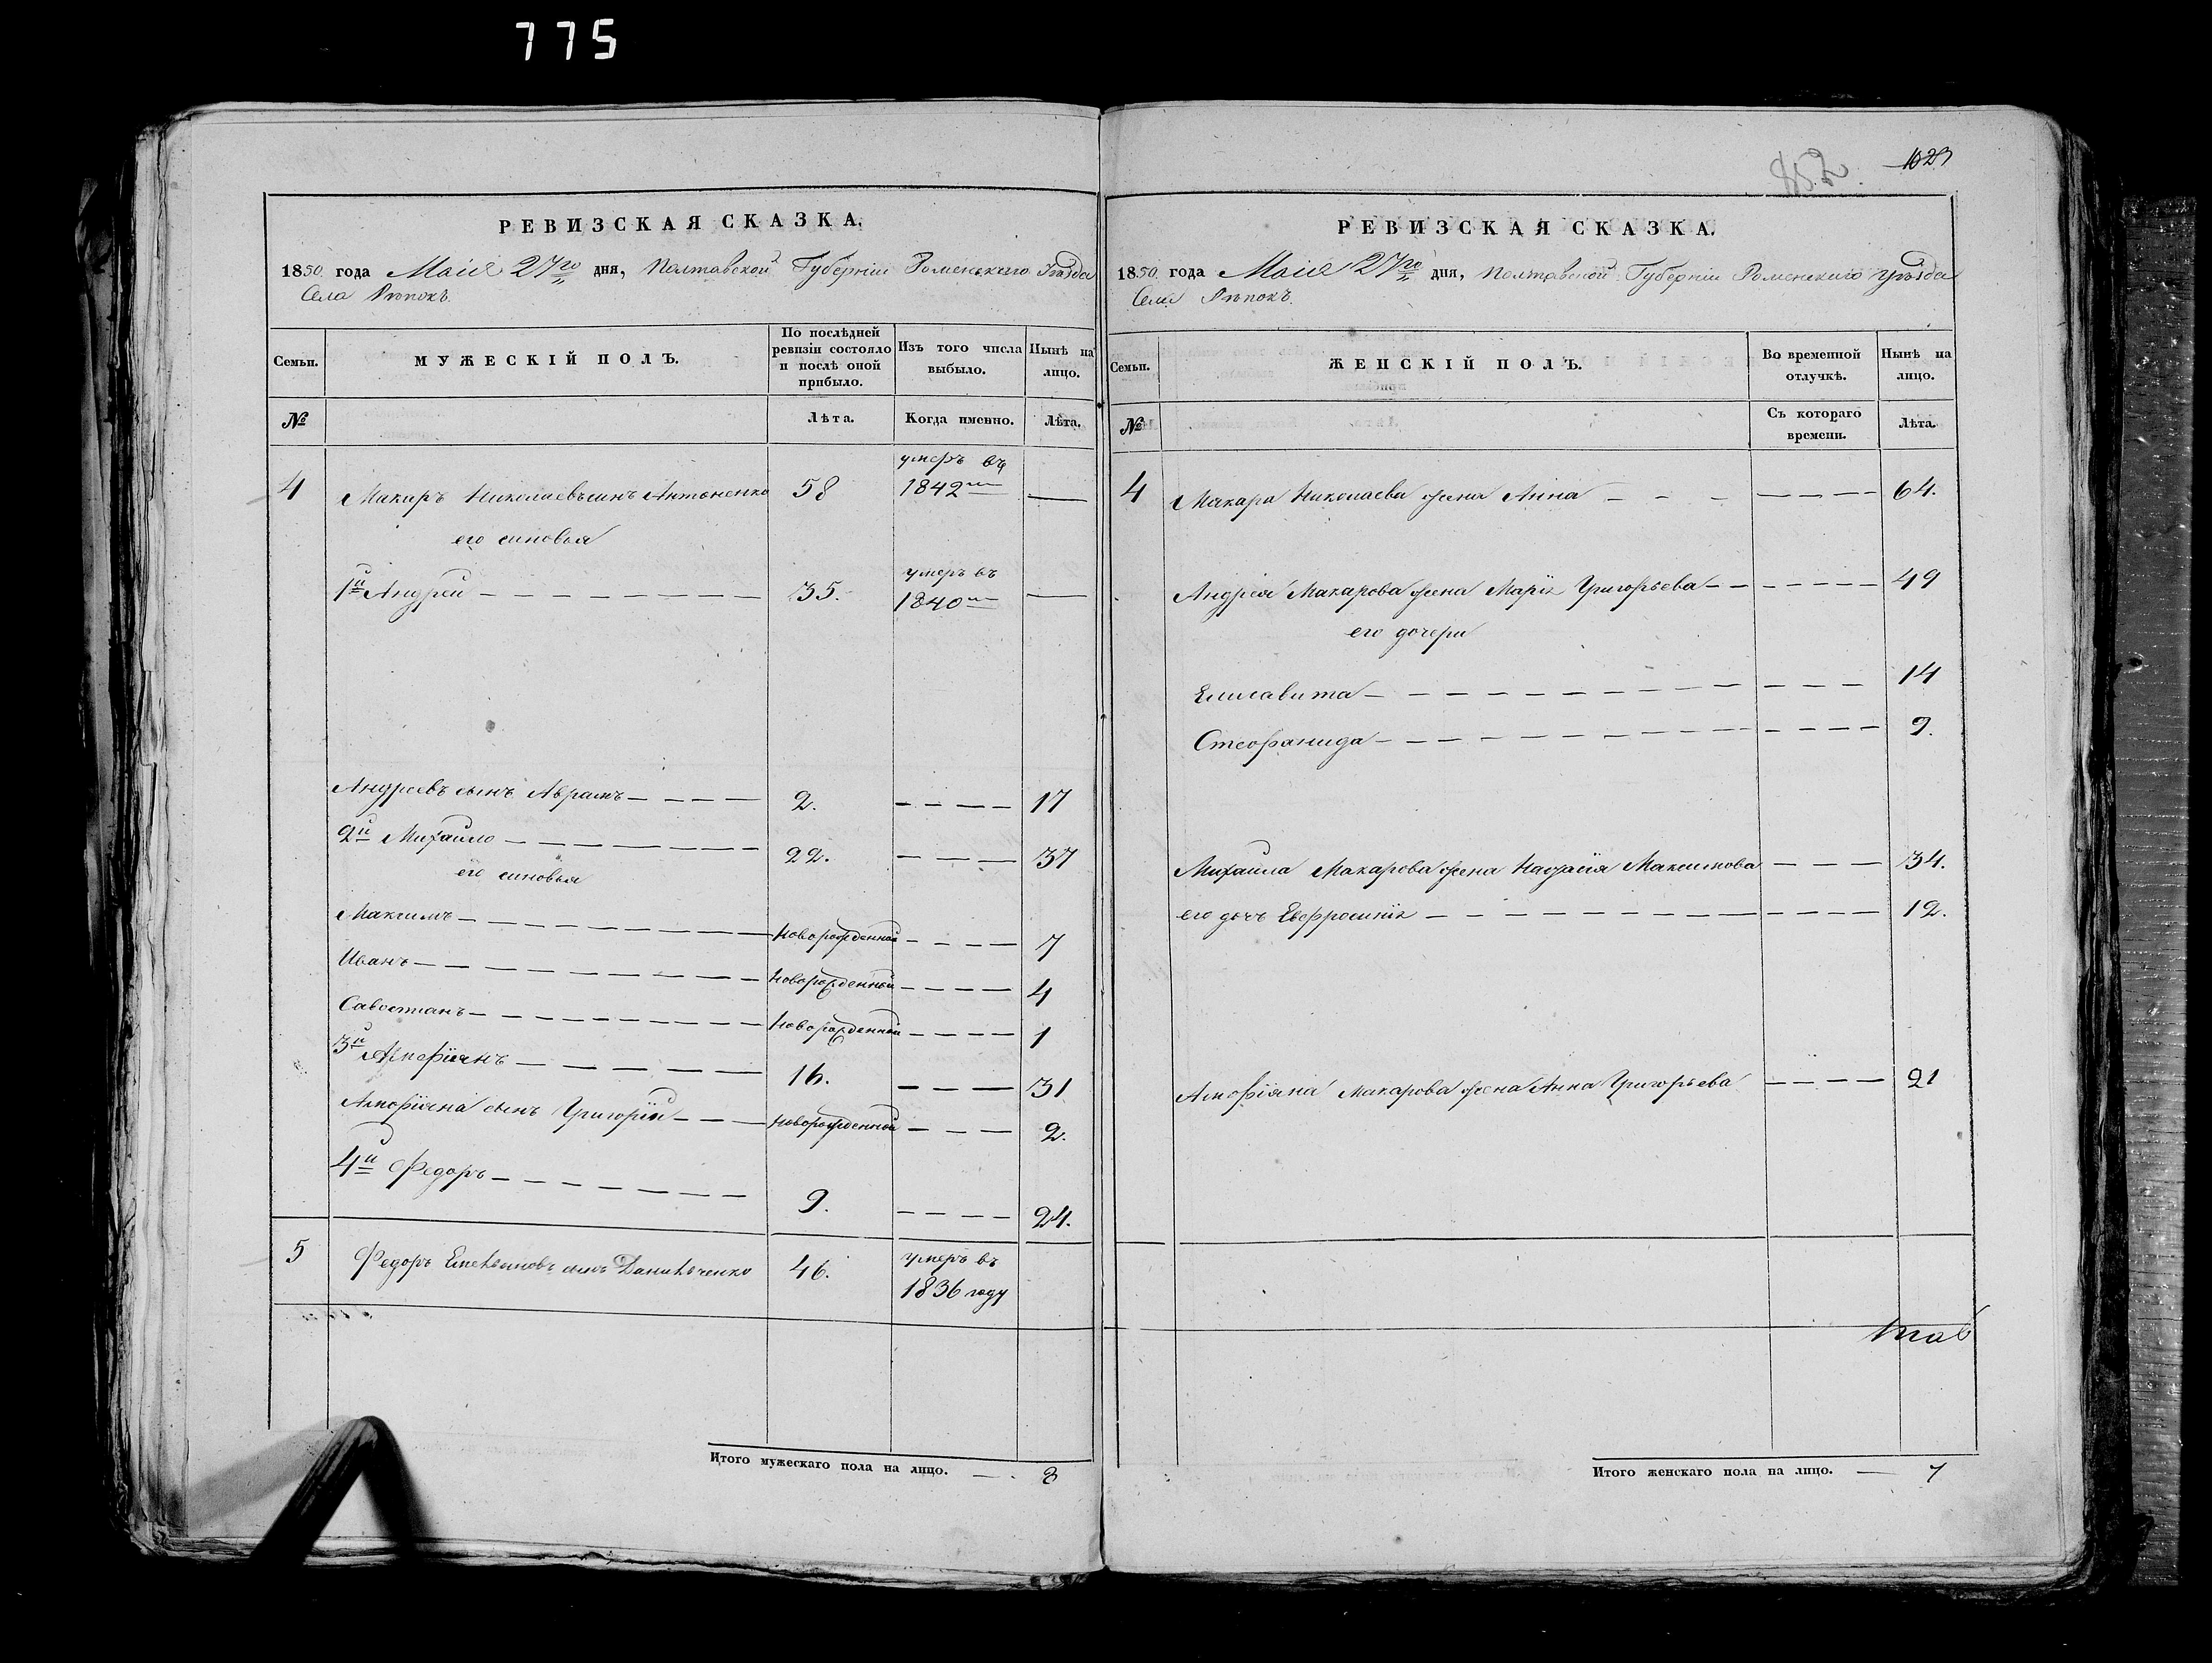 775
РЕВИЗСКАЯ СКАЗКА.
1850 года Маія 27го дня, Полтавской Губерніи Роменского Уѣзда
Села Рѣпокъ.
Семьи. МУЖЕСКІЙ ПОЛЪ. По послѣдней ревизіи состояло и послѣ оной прибыло. Изъ того числа выбыло. Нынѣ на лицо.
№ Лѣта. Когда именно. Лѣта.
4 Макаръ Николаевъ сынъ Антоненко 58 умеръ въ 1842м —
его синовья
1й Андрей — 35. умеръ въ 1840м —
Андреевъ сынъ Аврамъ — 2. — 17
2й Михайло — 22. — 37
его синовья
Максимъ — Новорожденной — 7
Иванъ — Новорожденной — 4
Савостианъ — Новорожденной — 1
3й Ампфіянъ — 16. — 31
Ампофіяна сынъ Григорій — Новорожденной — 2.
4й Федоръ — 9. — 24.
5 Федоръ Емельяновъ сынъ Данильченко 46. умеръ въ 1836 году
Итого мужескаго пола на лицо. — 8
1023
852.
РЕВИЗСКАЯ СКАЗКА.
1850 года Маія 27го дня, Полтавской Губерніи Роменского Уѣзда
Села Рѣпокъ.
Семьи. ЖЕНСКІЙ ПОЛЪ. Во временной отлучкѣ. Нынѣ на лицо.
№ Съ котораго времени. Лѣта.
4 Макара Николаева жена Анна — — 64.
Андрея Макарова жена Марія Григорьева — — 49
его дочери
Елисавита — — 14
Стеофанида — — 9.
Михаила Макарова жена Настасія Максимова — 34.
его дочъ Евфросинія — — 12.
Амофіяна Макарова жена Анна Григорьева — 21
Итого женскаго пола на лицо. — 7